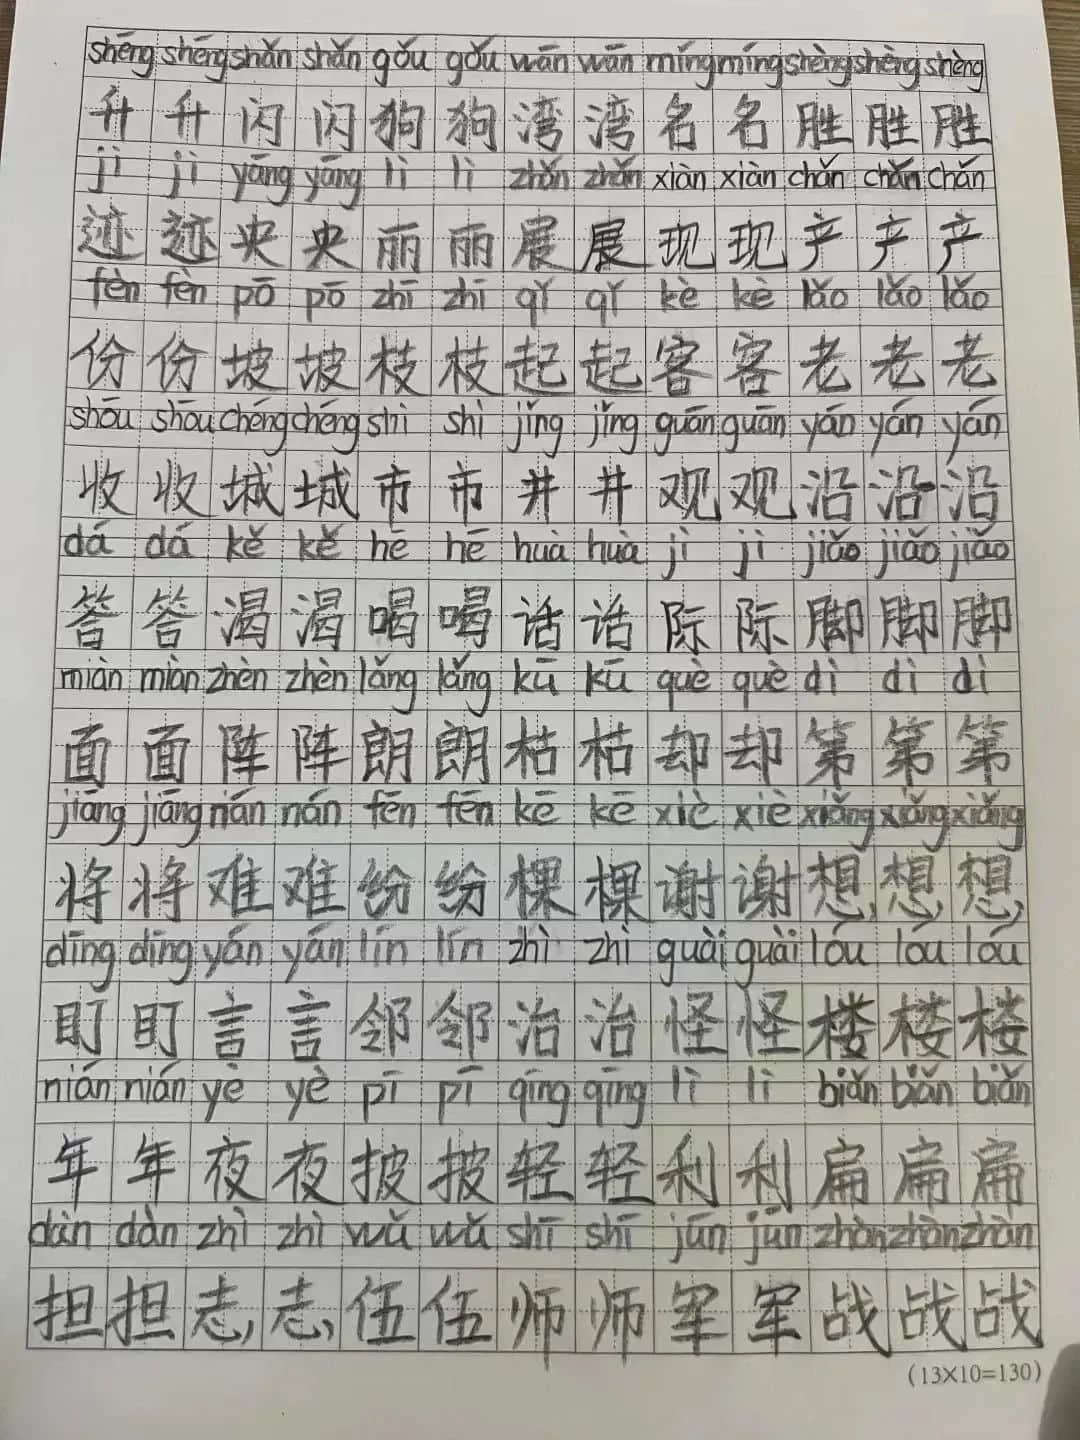 shēng shēng shǎn shǎn gǒu gǒu wān wān míng míng shèng shèng shèng
升 升 闪 闪 狗 狗 湾 湾 名 名 胜 胜 胜
jì jì yāng yāng lì lì zhǎn zhǎn xiàn xiàn chǎn chǎn chǎn
迹 迹 央 央 丽 丽 展 展 现 现 产 产 产
fèn fèn pō pō zhī zhī qǐ qǐ kè kè lǎo lǎo lǎo
份 份 坡 坡 枝 枝 起 起 客 客 老 老 老
shōu shōu chéng chéng shì shì jǐng jǐng guān guān yán yán yán
收 收 城 城 市 市 井 井 观 观 沿 沿 沿
dá dá kě kě hē hē huà huà jì jì jiǎo jiǎo jiǎo
答 答 渴 渴 喝 喝 话 话 际 际 脚 脚 脚
miàn miàn zhèn zhèn lǎng lǎng kū kū què què dì dì dì
面 面 阵 阵 朗 朗 枯 枯 却 却 第 第 第
jiāng jiāng nán nán fēn fēn kē kē xiè xiè xiǎng xiǎng xiǎng
将 将 难 难 纷 纷 棵 棵 谢 谢 想 想 想
dīng dīng yán yán lín lín zhì zhì guài guài lóu lóu lóu
盯 盯 言 言 邻 邻 治 治 怪 怪 楼 楼 楼
nián nián yè yè pī pī qīng qīng lì lì biǎn biǎn biǎn
年 年 夜 夜 披 披 轻 轻 利 利 扁 扁 扁
dàn dàn zhì zhì wǔ wǔ shī shī jūn jūn zhàn zhàn zhàn
担 担 志 志 伍 伍 师 师 军 军 战 战 战
(13×10=130)